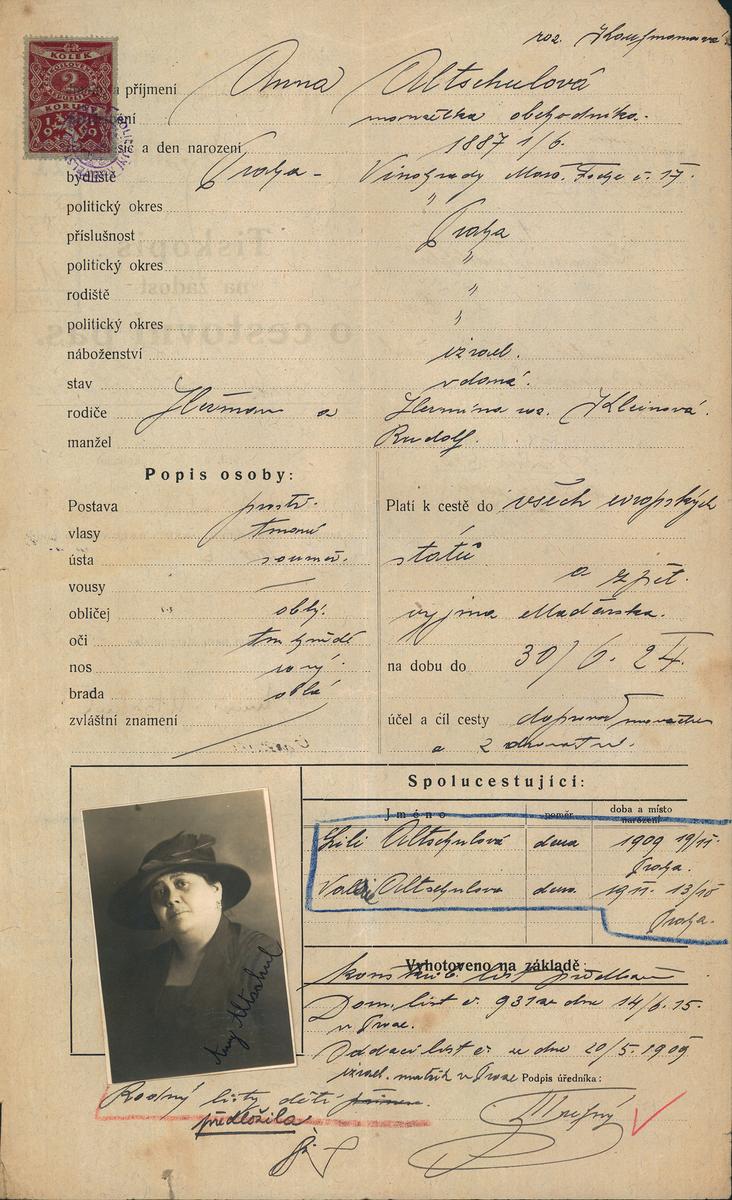 roz. Kaufmanová
KOLEK
2
KORUNY
1919
a příjmení Anna Altschulová
manželka obchodníka.
a den narození 1887 1/6.
bydliště Praha - Vinohrady Foche č. 17.
politický okres "
příslušnost Praha
politický okres "
rodiště "
politický okres "
náboženství izrael.
stav vdaná.
rodiče Heřman a Hermína roz. Kleinová.
manžel Rudolf.
Popis osoby:
Postava prostř.
vlasy tmavé
ústa souměr.
vousy —
obličej oblý.
oči tm. hnědé
nos rovný.
brada oblá
zvláštní znamení
Platí k cestě do všech evropských
států
a zpět.
vyjma Maďarska.
na dobu do 30/6. 24.
účel a cíl cesty doprovod manžela
a zdravotní.
Spolucestující:
Jméno poměr doba a místo narození
Lili Altschulová dcera 1909 19/11.
Praha.
Valerie Altschulova dcera 1911. 13/10
Praha.
Vyhotoveno na základě:
Dom. list č. 931 ze dne 14/6. 15.
v Praze.
Oddací list č. ze dne 20/5. 1909
izrael. matrik v Praze Podpis úředníka:
Any Altschul
Rodný listy dětí
předložila